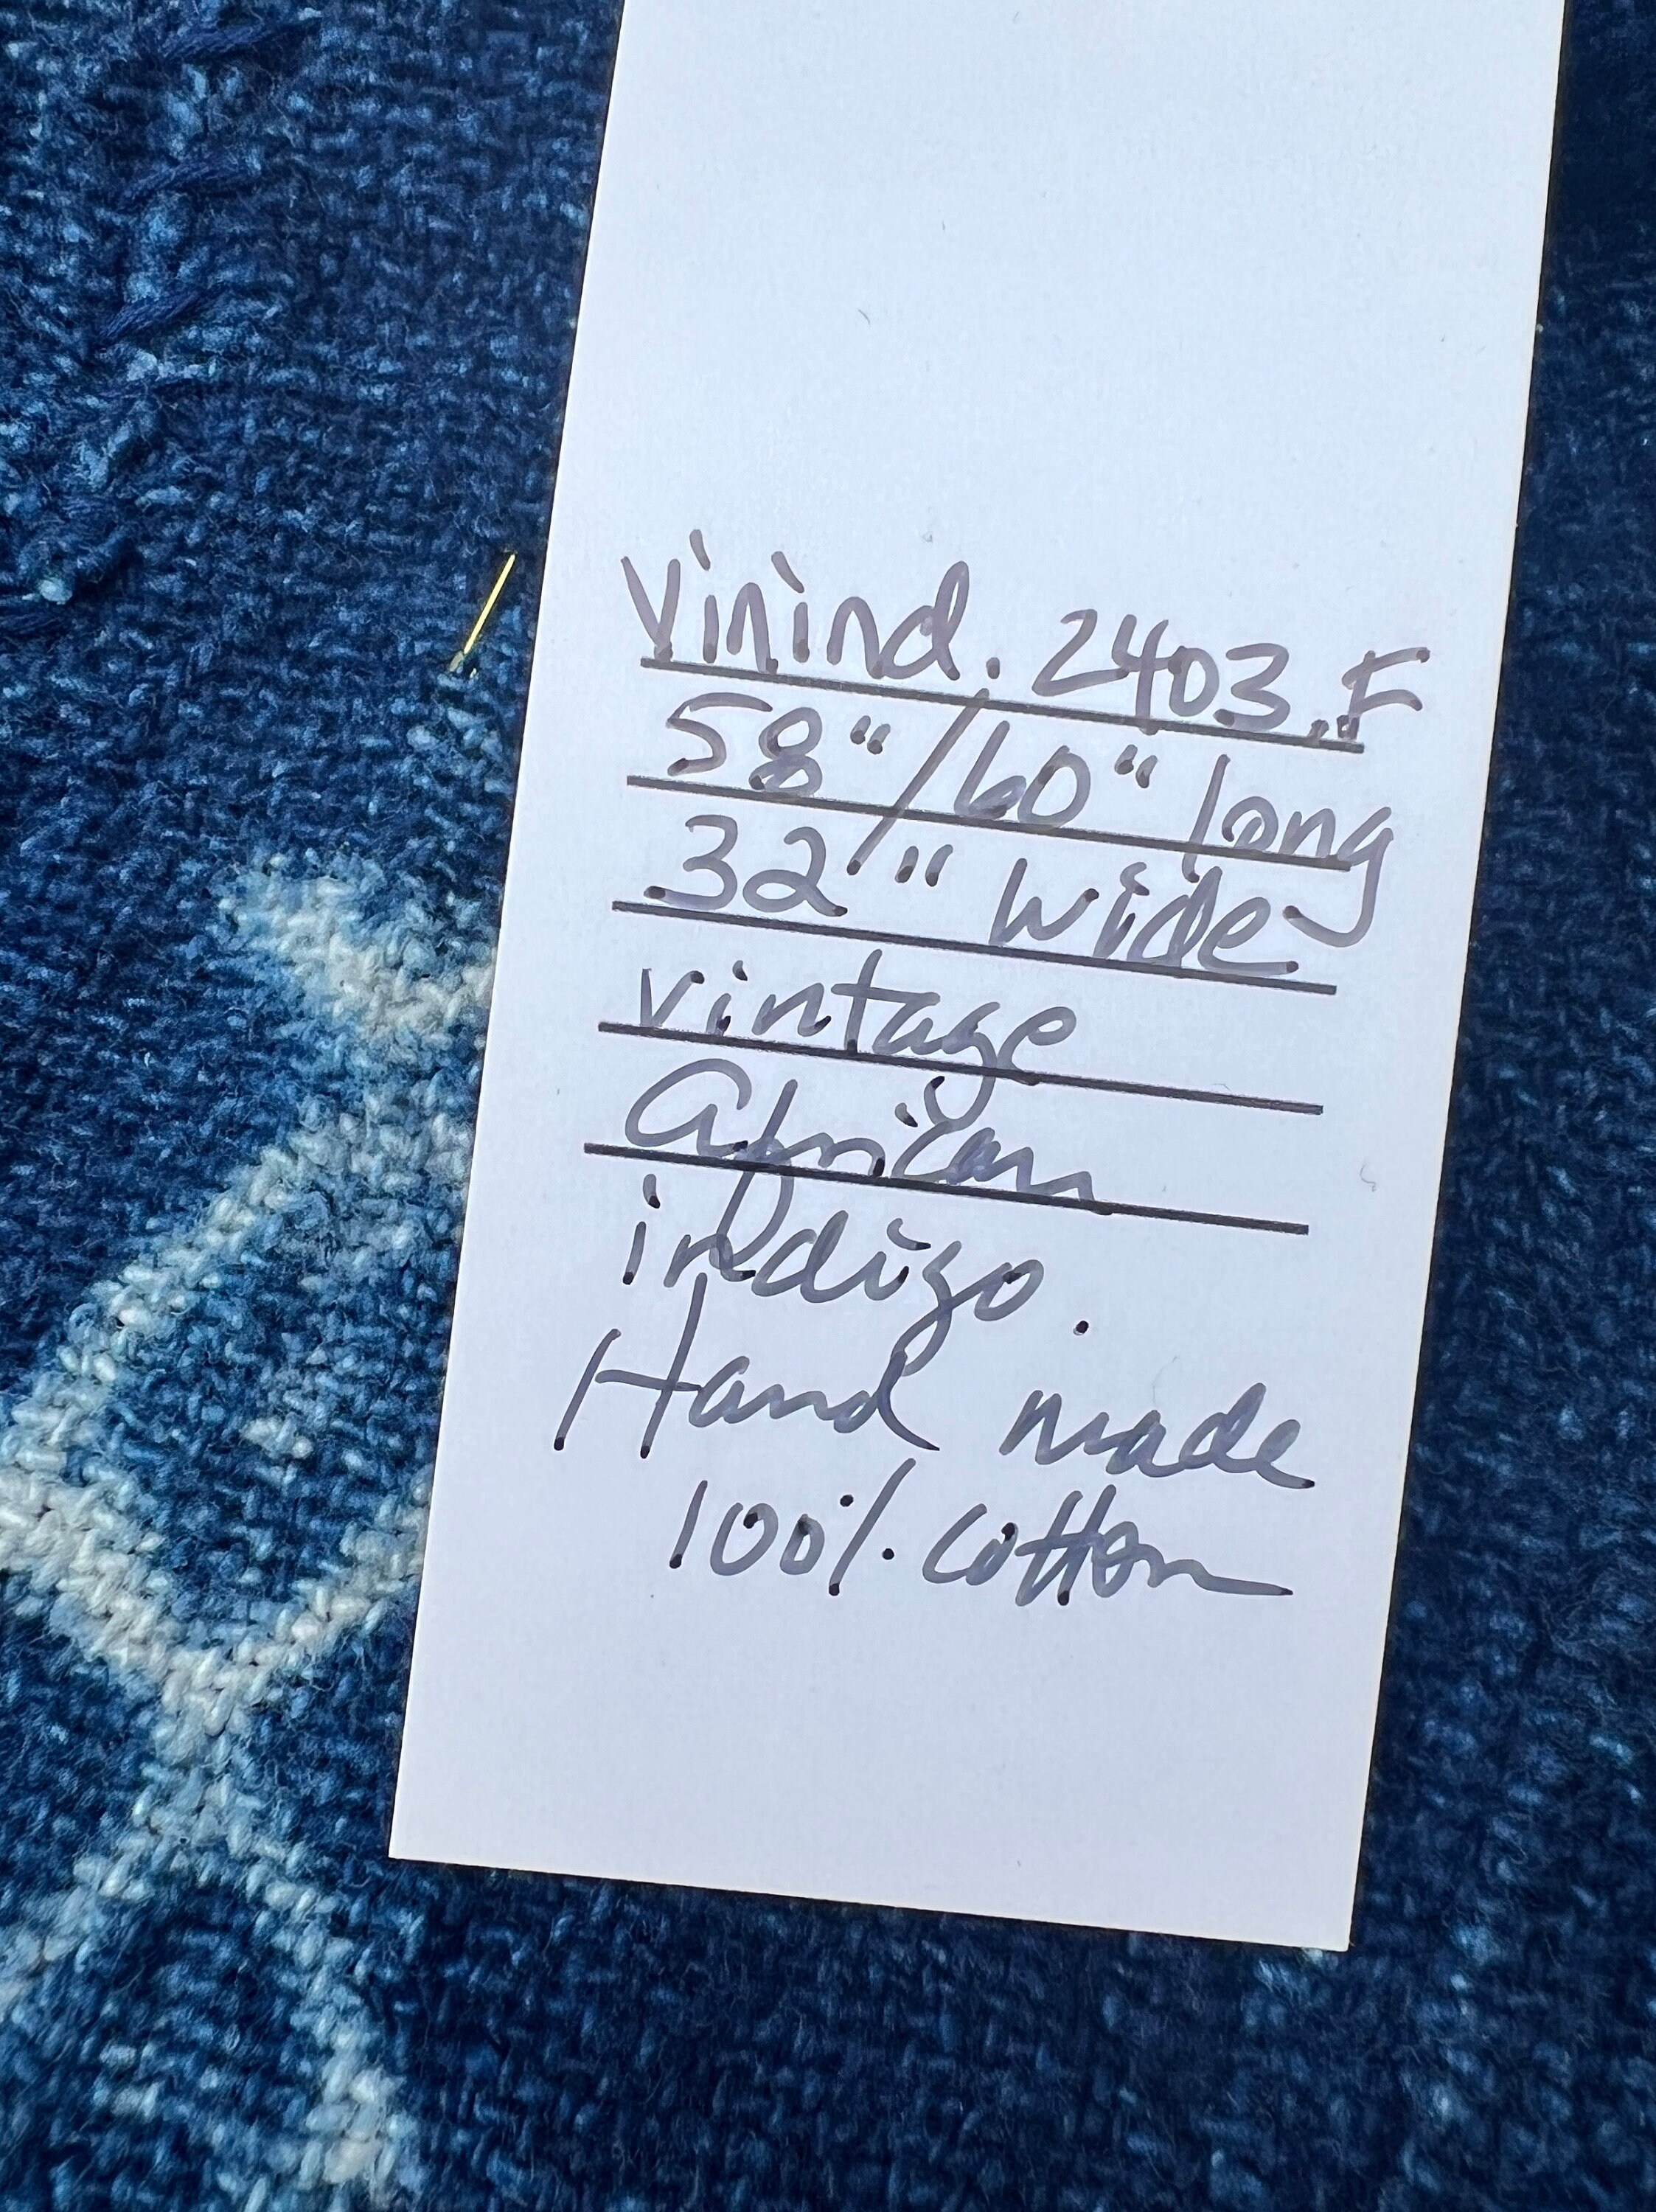 Vinind. 2403.F
58"/60" long
32" wide
vintage
African
indigo.
Hand made
100% cotton